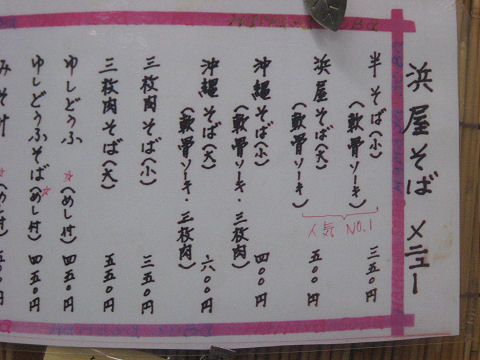 浜屋そば メニュー
半そば(小)
(軟骨ソーキ) 三五〇円
浜屋そば(大)
(軟骨ソーキ) 五〇〇円
人気 NO.1
沖縄そば(小)
(軟骨ソーキ・三枚肉) 四〇〇円
沖縄そば(大)
(軟骨ソーキ・三枚肉) 六〇〇円
三枚肉そば(小) 三五〇円
三枚肉そば(大) 五五〇円
ゆしどうふ ☆(めし付) 四五〇円
ゆしどうふそば(めし付) ☆ 四五〇円
みそ汁 ☆(めし付) 五〇〇円